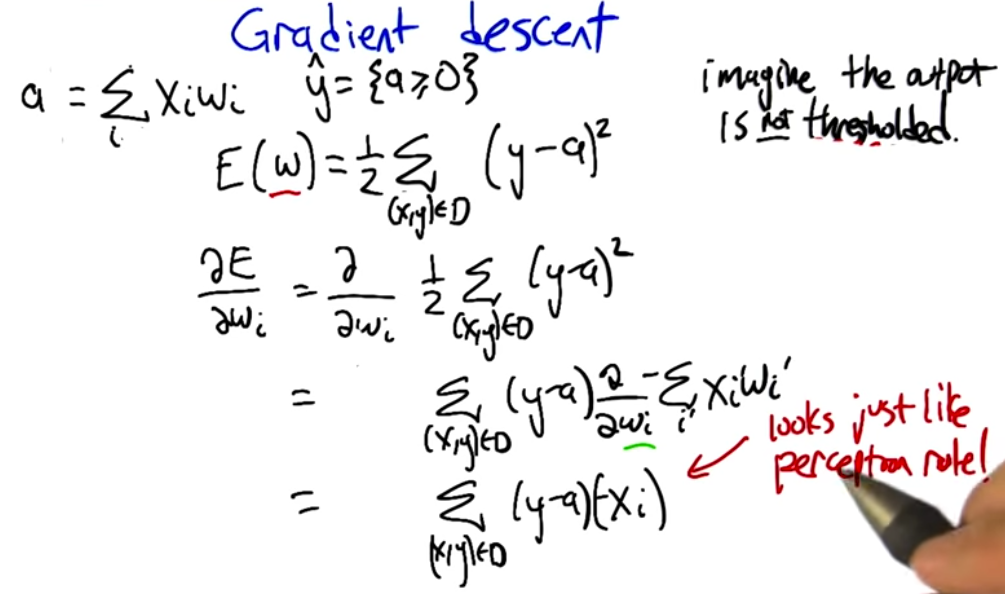 Gradient descent
a = Σ_i x_i w_i   ŷ = {a ≥ 0}
imagine the output
is not thresholded.
E(w) = 1/2 Σ_{(x,y)∈D} (y-a)²
∂E/∂w_i = ∂/∂w_i 1/2 Σ_{(x,y)∈D} (y-a)²
= Σ_{(x,y)∈D} (y-a) ∂/∂w_i - Σ_{i'} x_i w_i'
looks just like
perceptron rule!
= Σ_{(x,y)∈D} (y-a)(-x_i)